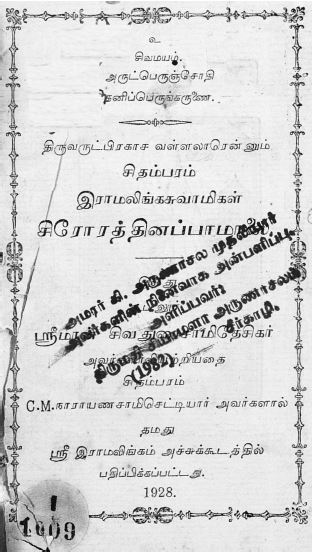 உ
சிவமயம்.
அருட்பெருஞ்சோதி
தனிப்பெருங்கருணை.
திருவருட்பிரகாச வள்ளலாரென்னும்
சிதம்பரம்
இராமலிங்கசுவாமிகள்
சிரோரத்தினப்பாமாலை
இஃது
ஸ்ரீமத் சிவ சாமிதேசிகர்
அவர்கள் இயற்றியதை
சிதம்பரம்
C.M.நாராயணசாமிசெட்டியார் அவர்களால்
தமது
ஸ்ரீ இராமலிங்கம் அச்சுக்கூடத்தில்
பதிப்பிக்கப்பட்டது.
1928.
அமரர் கி. அருணாசல முதலியார்
அவர்களின் நினைவாக அன்பளிப்பு
அளிப்பவர்:
திருமதி அருணாசலம்
(1982) சீர்காழி.
1009